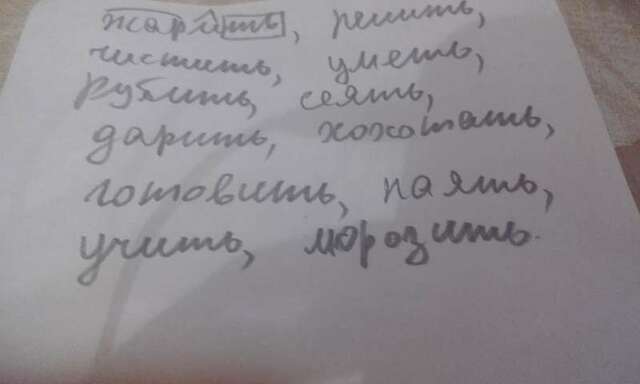 жарить, решить,
чистить, уметь,
рубить, сеять,
дарить, хохотать,
готовить, паять,
учить, морозить.